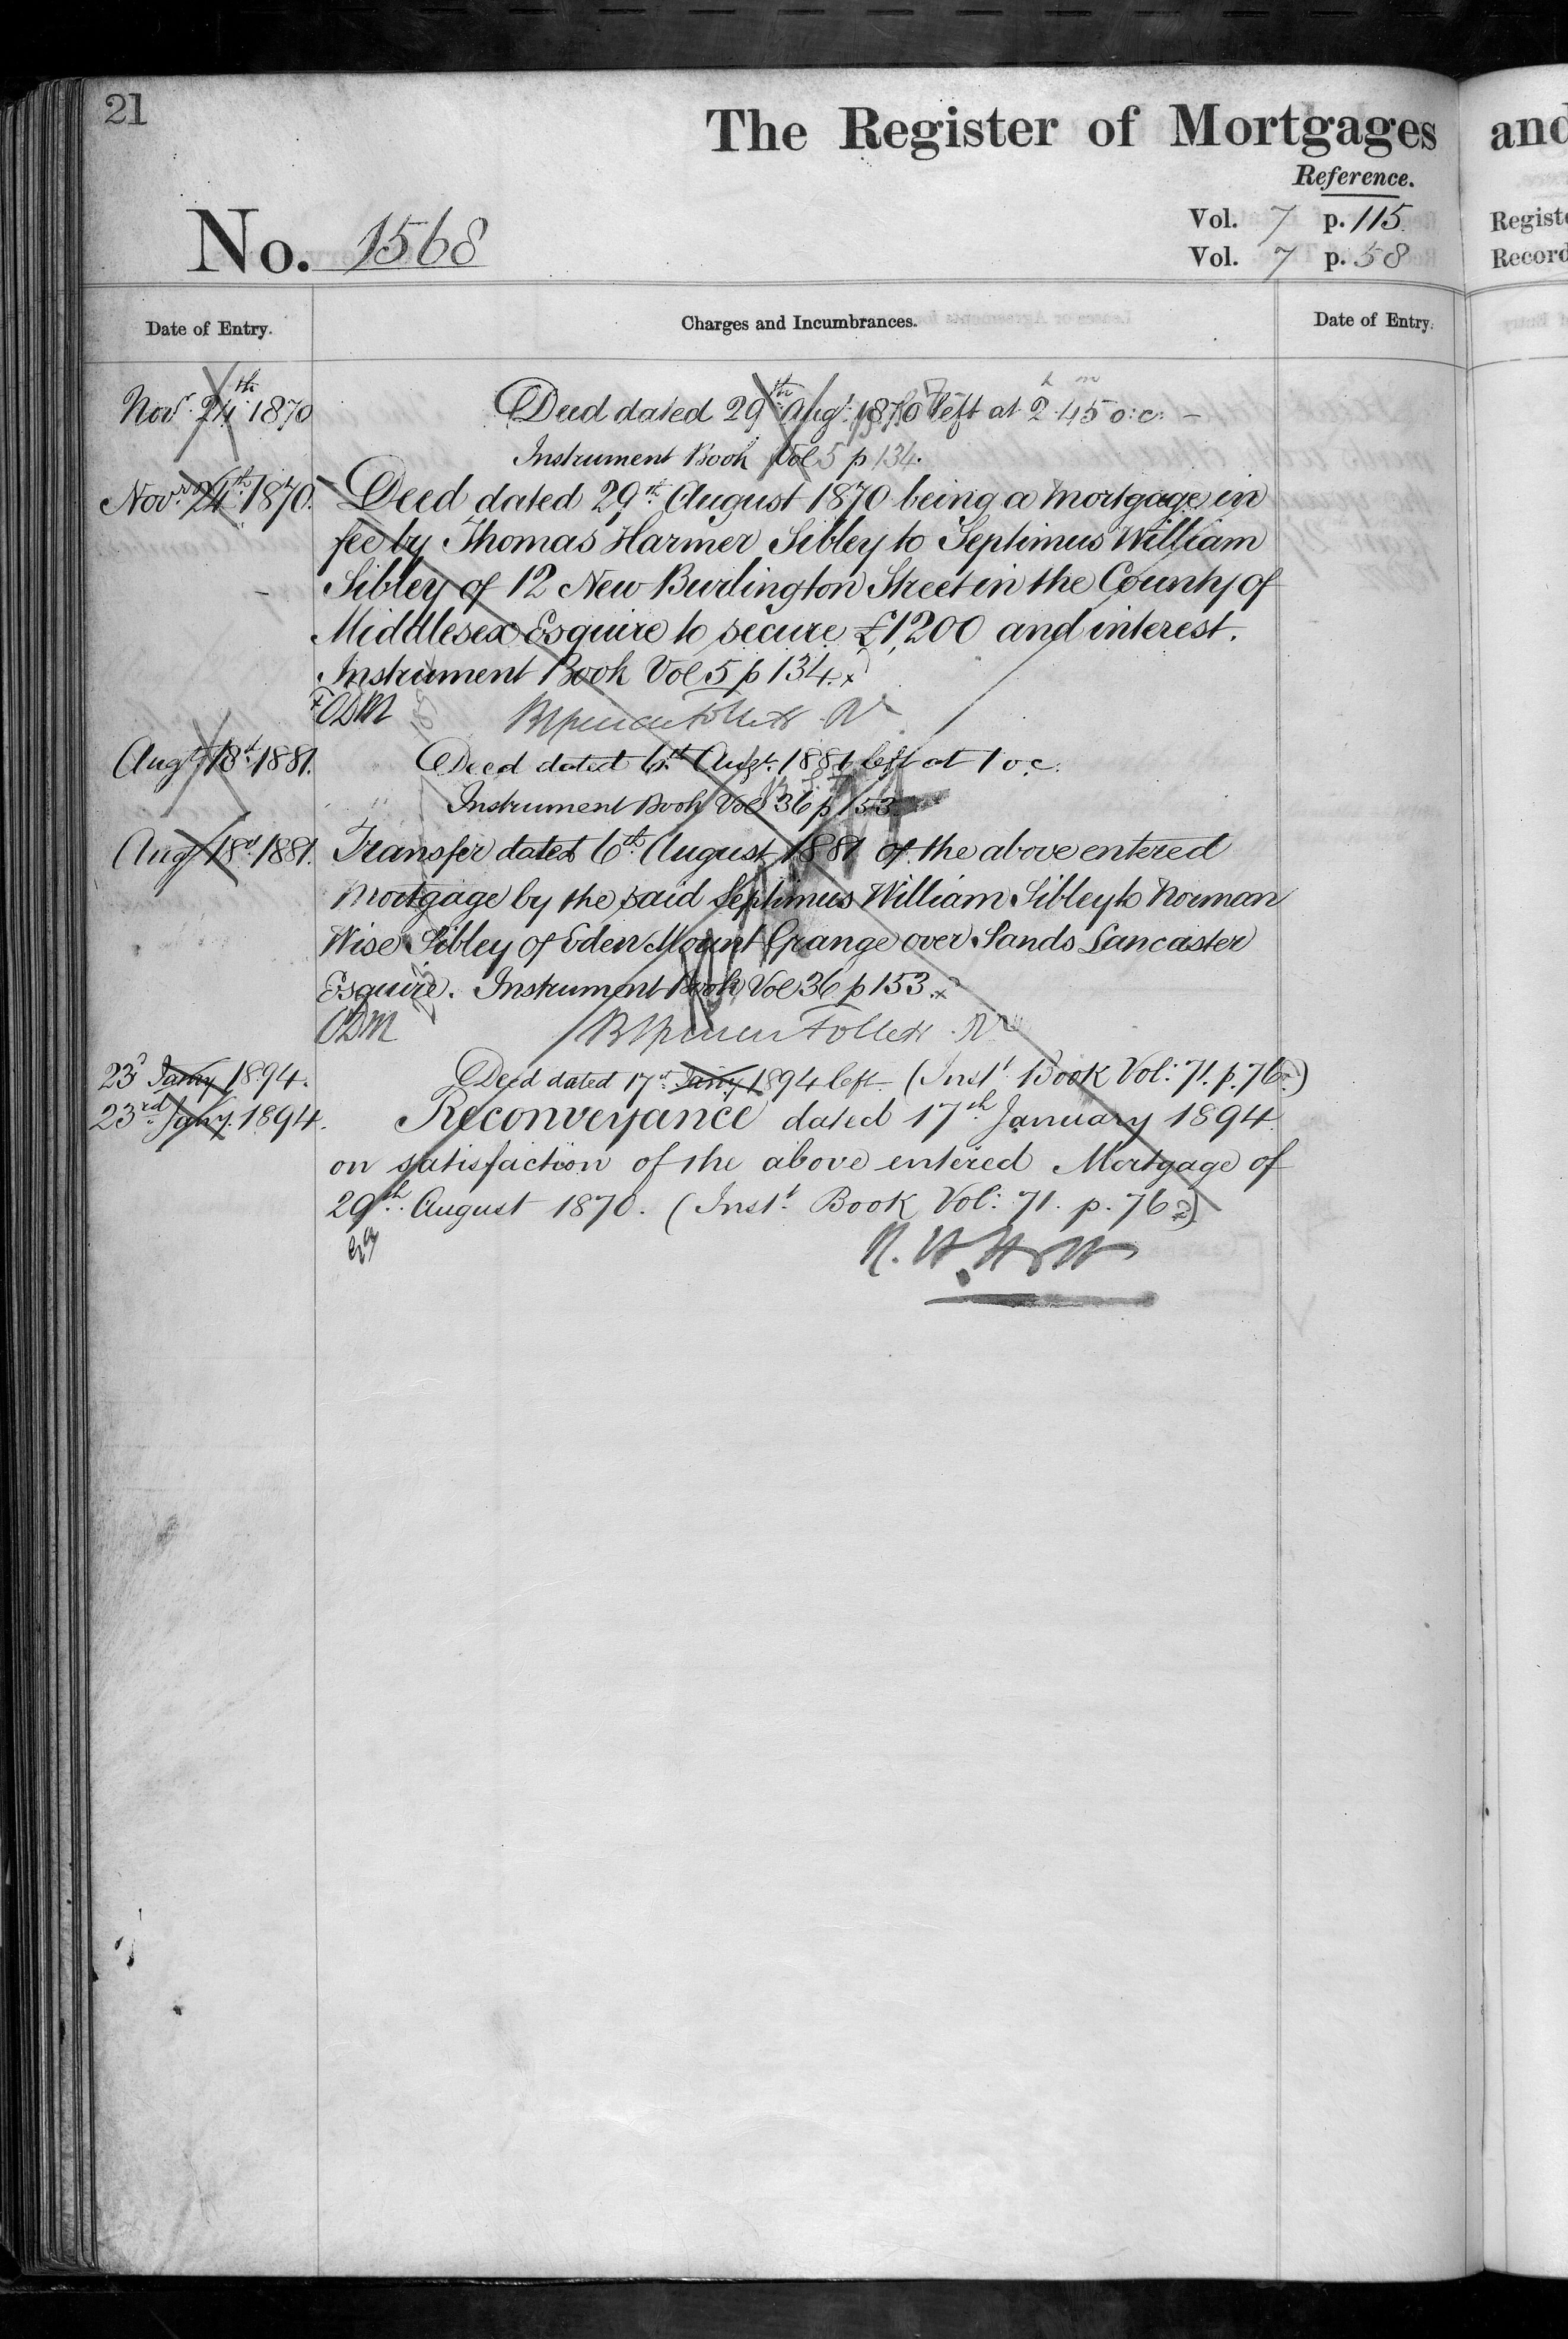 21
The Register of Mortgages and
Reference.
No. 1568
Vol. 7 p. 115 Regist
Vol. 7 p. 58 Record
Date of Entry. Charges and Incumbrances. Date of Entry.
Novr. 24th 1870 Deed dated 29th Augt. 1870 left at 2h 45m o:c: -
Instrument Book Vol 5 p 134.
Novr. 24th 1870. Deed dated 29th August 1870 being a Mortgage in
fee by Thomas Harmer Sibley to Septimus William
Sibley of 12 New Burlington Street in the County of
Middlesex Esquire to secure £1,200 and interest.
Instrument Book Vol 5 p 134.
ODM
Augt. 18th 1881. Deed dated 6th Augt. 1881 left at 1 o.c.
Instrument Book Vol 36 p 153
Augt 18th 1881. Transfer dated 6th August 1881 of the above entered
Mortgage by the said Septimus William Sibley to Norman
Wise Sibley of Eden Mount Grange over Sands Lancaster
Esquire. Instrument Book Vol 36 p 153.
ODM
23d Jany 1894. Deed dated 17th Jany 1894 left - (Inst. Book Vol: 71. p. 76)
23rd Jany. 1894. Reconveyance dated 17th January 1894
on satisfaction of the above entered Mortgage of
29th August 1870. (Inst. Book Vol: 71. p. 76)